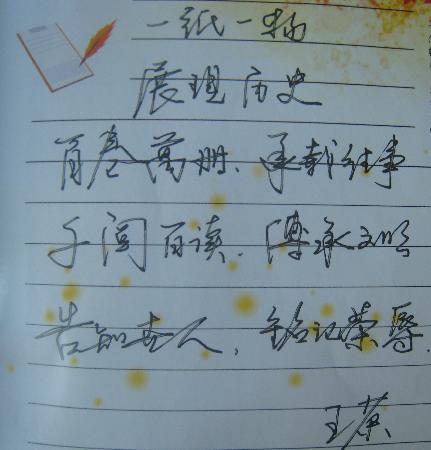 一纸一物
展现历史
百卷万册、承载往事
千阅百读、传承文明
告知世人、铭记荣辱
王